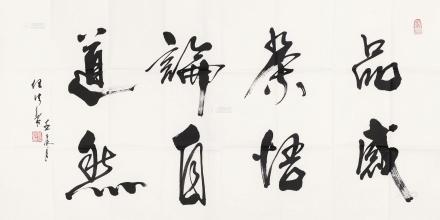 品感
茶悟
論自
道然